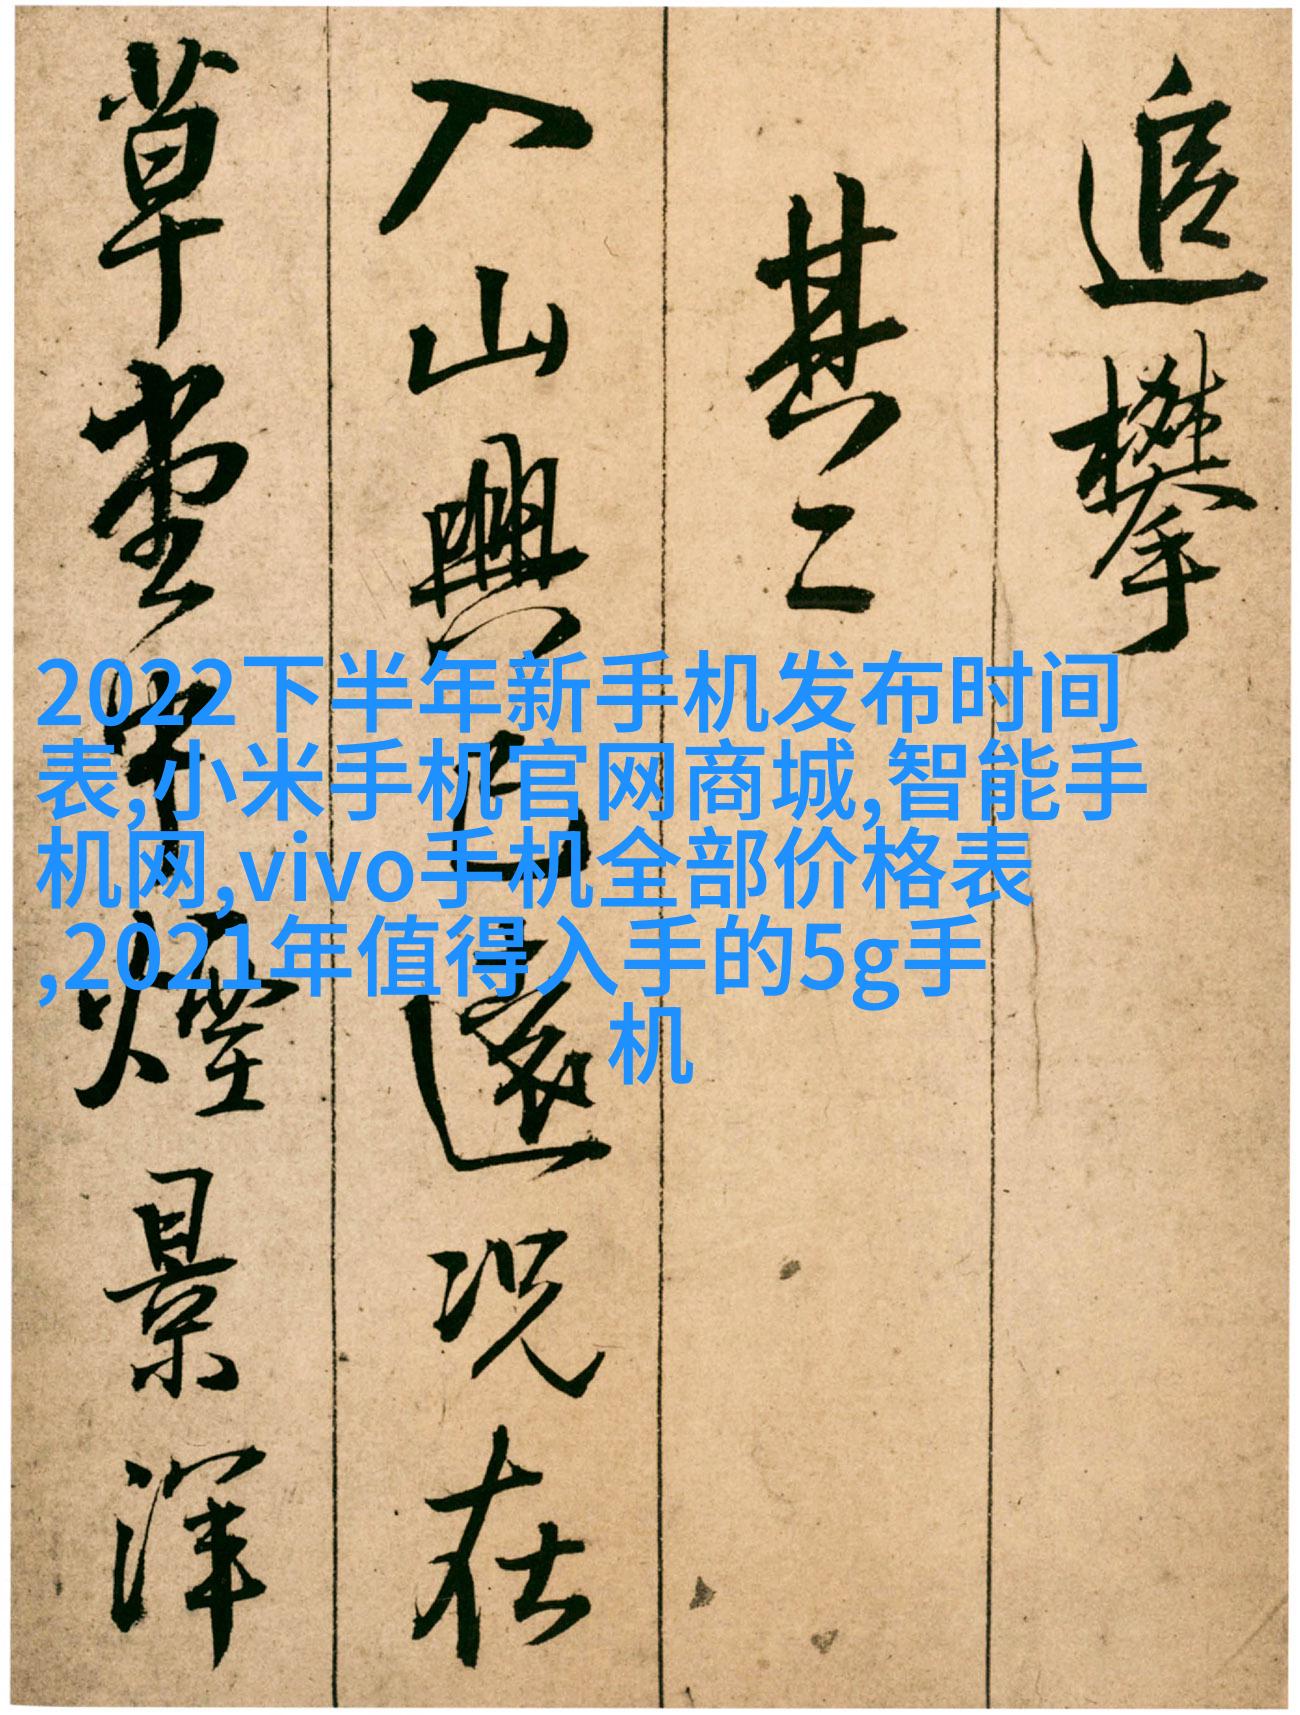 追攀
其二
入山興已遠況在
草堂中煙景渾
2022下半年新手机发布时间
表,小米手机官网商城,智能手
机网,vivo手机全部价格表
,2021年值得入手的5g手
机